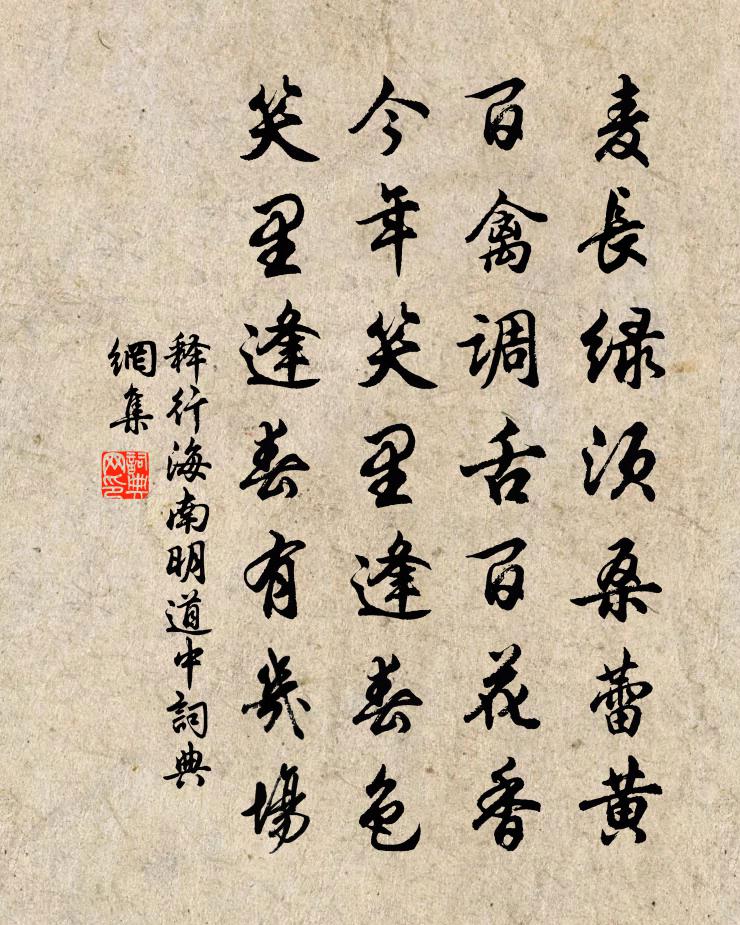 麦長緑须桑蕾黄
百禽調舌百花香
今年笑里逢春色
笑里逢春有幾場
释行海南明道中詞典
網集
詞典
网印